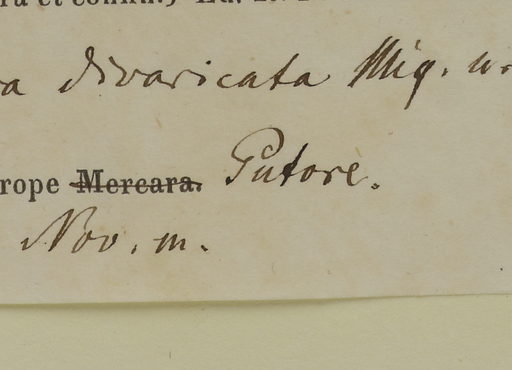 a divaricata Miq. n.
rope Mercara. Putore.
Nov. m.